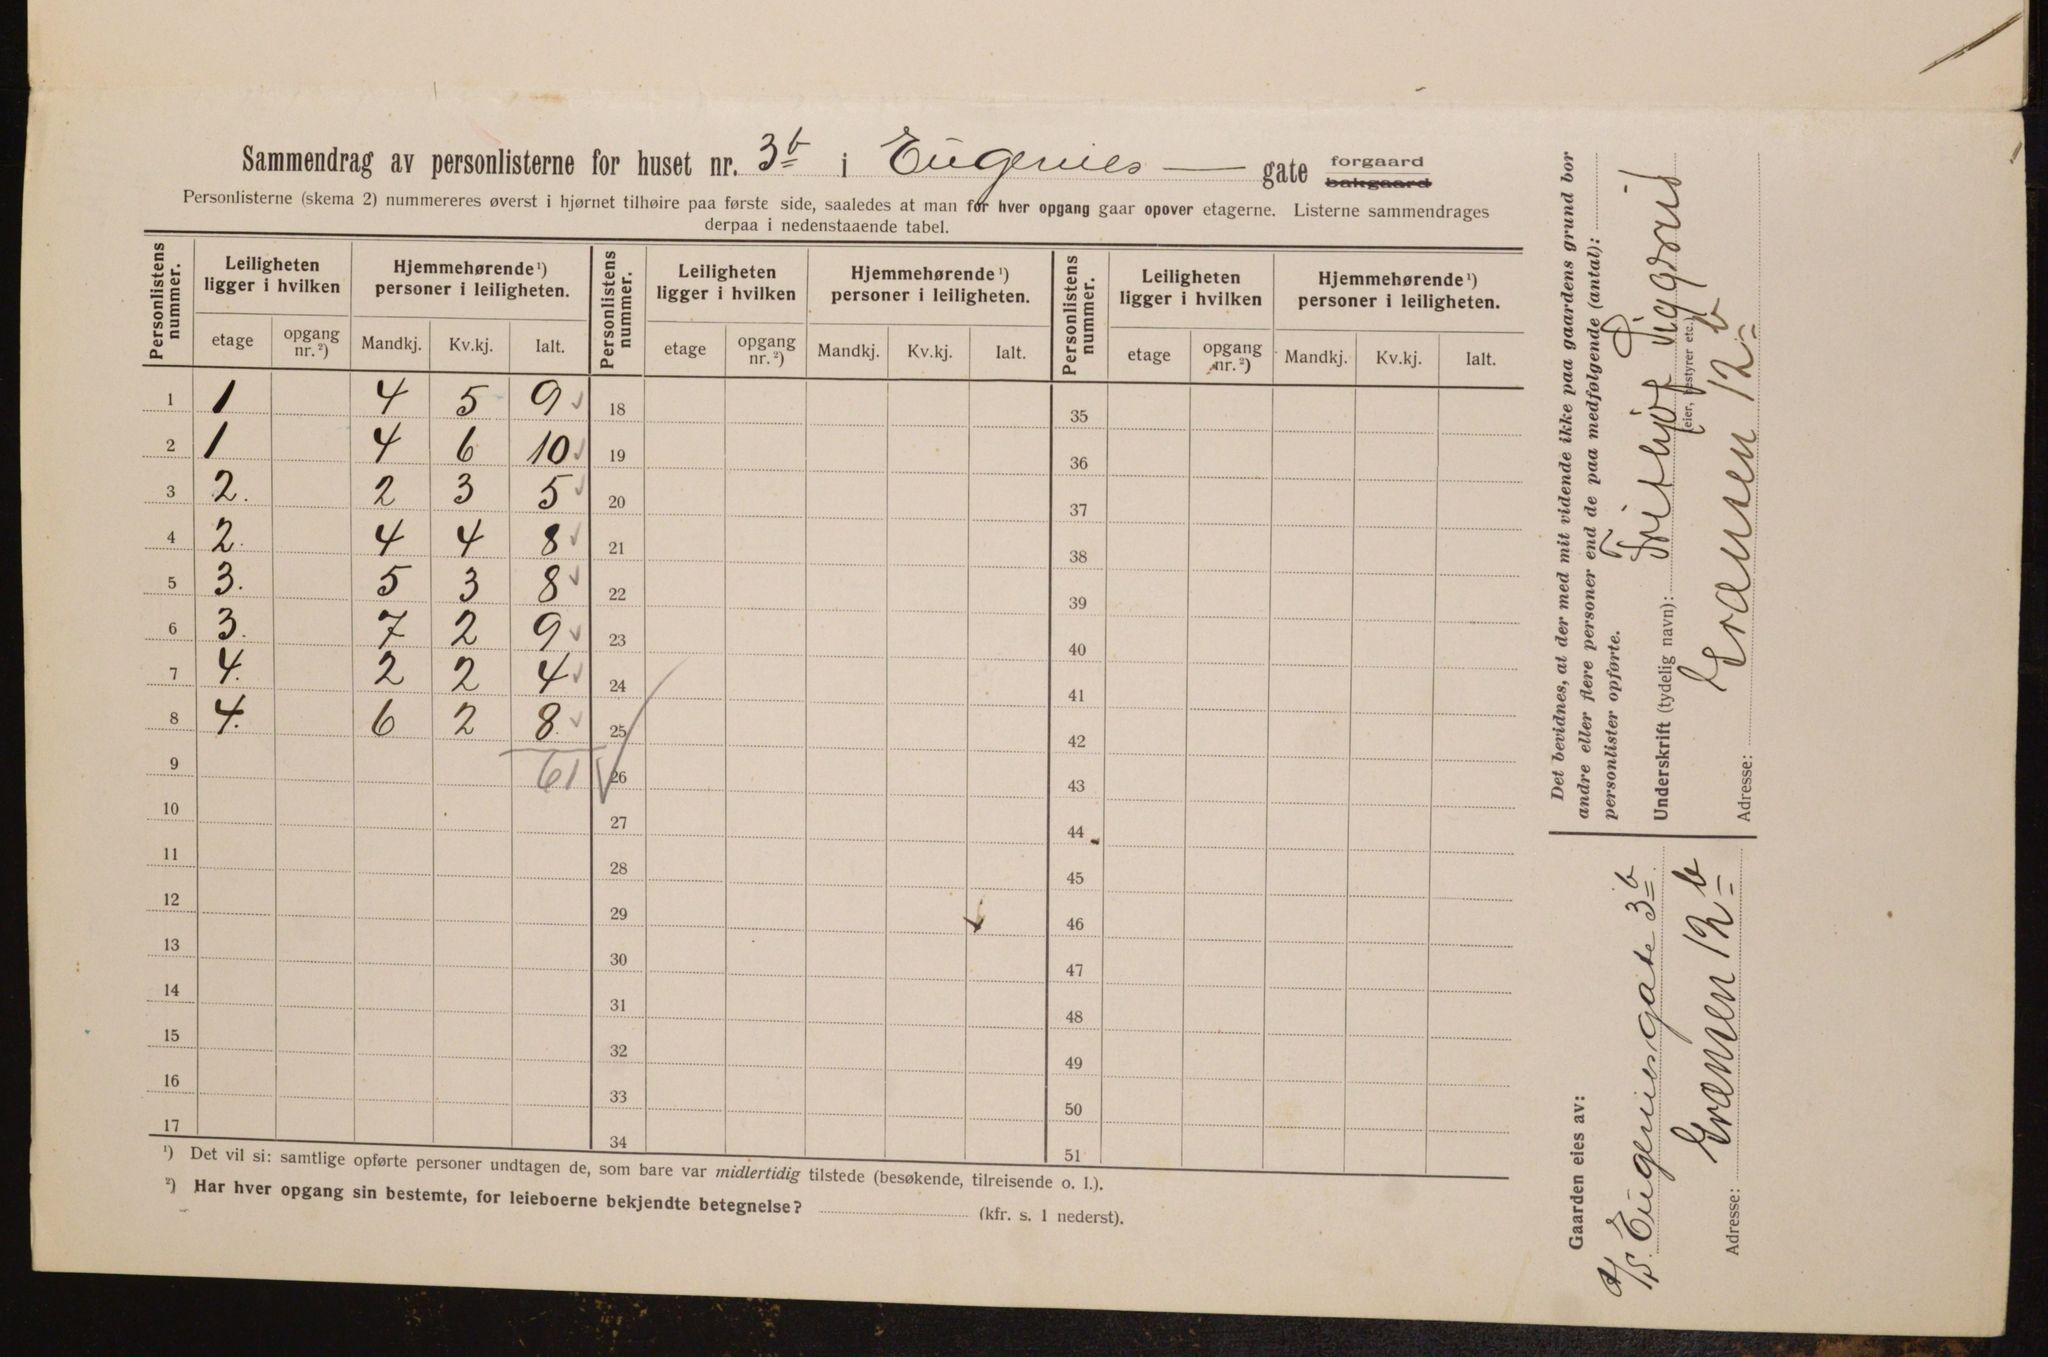 Sammendrag av personlisterne for huset nr. 3b i Eugenies — gate forgaard bakgaard
Personlisterne (skema 2) nummereres øverst i hjørnet tilhøire paa første side, saaledes at man for hver opgang gaar opover etagerne. Listerne sammendrages
derpaa i nedenstaaende tabel.
Personlistens nummer. Leiligheten ligger i hvilken Hjemmehørende¹) personer i leiligheten. Personlistens nummer. Leiligheten ligger i hvilken Hjemmehørende¹) personer i leiligheten. Personlistens nummer. Leiligheten ligger i hvilken Hjemmehørende¹) personer i leiligheten.
etage opgang nr.²) Mandkj. Kv.kj. Ialt. etage opgang nr.²) Mandkj. Kv.kj. Ialt. etage opgang nr.²) Mandkj. Kv.kj. Ialt.
1 1 4 5 9 ✓ 18 35
2 1 4 6 10 ✓ 19 36
3 2. 2 3 5 ✓ 20 37
4 2. 4 4 8 ✓ 21 38
5 3. 5 3 8 ✓ 22 39
6 3. 7 2 9 ✓ 23 40
7 4. 2 2 4 ✓ 24 41
8 4. 6 2 8. ✓ 25 42
9 61 ✓ 26 43
10 27 44
11 28 45
12 29 46
13 30 47
14 31 48
15 32 49
16 33 50
17 34 51
¹) Det vil si: samtlige opførte personer undtagen de, som bare var midlertidig tilstede (besøkende, tilreisende o. l.).
²) Har hver opgang sin bestemte, for leieboerne bekjendte betegnelse? (kfr. s. 1 nederst).
Det bevidnes, at der med mit vidende ikke paa gaardens grund bor
andre eller flere personer end de paa medfølgende (antal):
personlister opførte.
Underskrift (tydelig navn): Frithjof
(eier, bestyrer etc.)
Adresse: Grænsen 12b
Gaarden eies av:
A/S. Eugeniesgate 3b
Adresse: Grænsen 12b